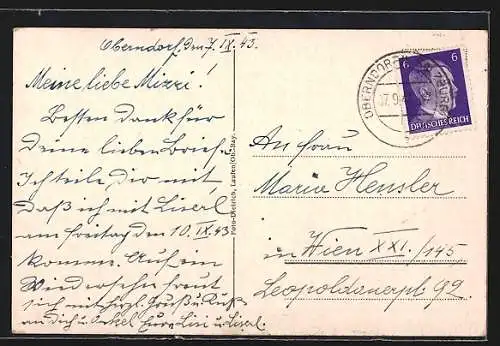 Oberndorf, den 7. IX. 43.
Meine liebe Mizzi!
Besten Dank für
Deine lieben Brief.
Ich teile Dir mit
daß ich mit Liserl
am Freitag den 10. IX. 43
komme. Auf ein
Wiedersehn freut
sich mit herzl. Gruß u. Kuß
an Dich u. Onkel Eure Lisi u. Liserl.
Foto-Dietrich, Laufen/Obb. Bay.
OBERNDORF
07.9.4
6
DEUTSCHES REICH
An Frau
Maria Hensler
in Wien XXI./145
Leopoldauerpl 92.